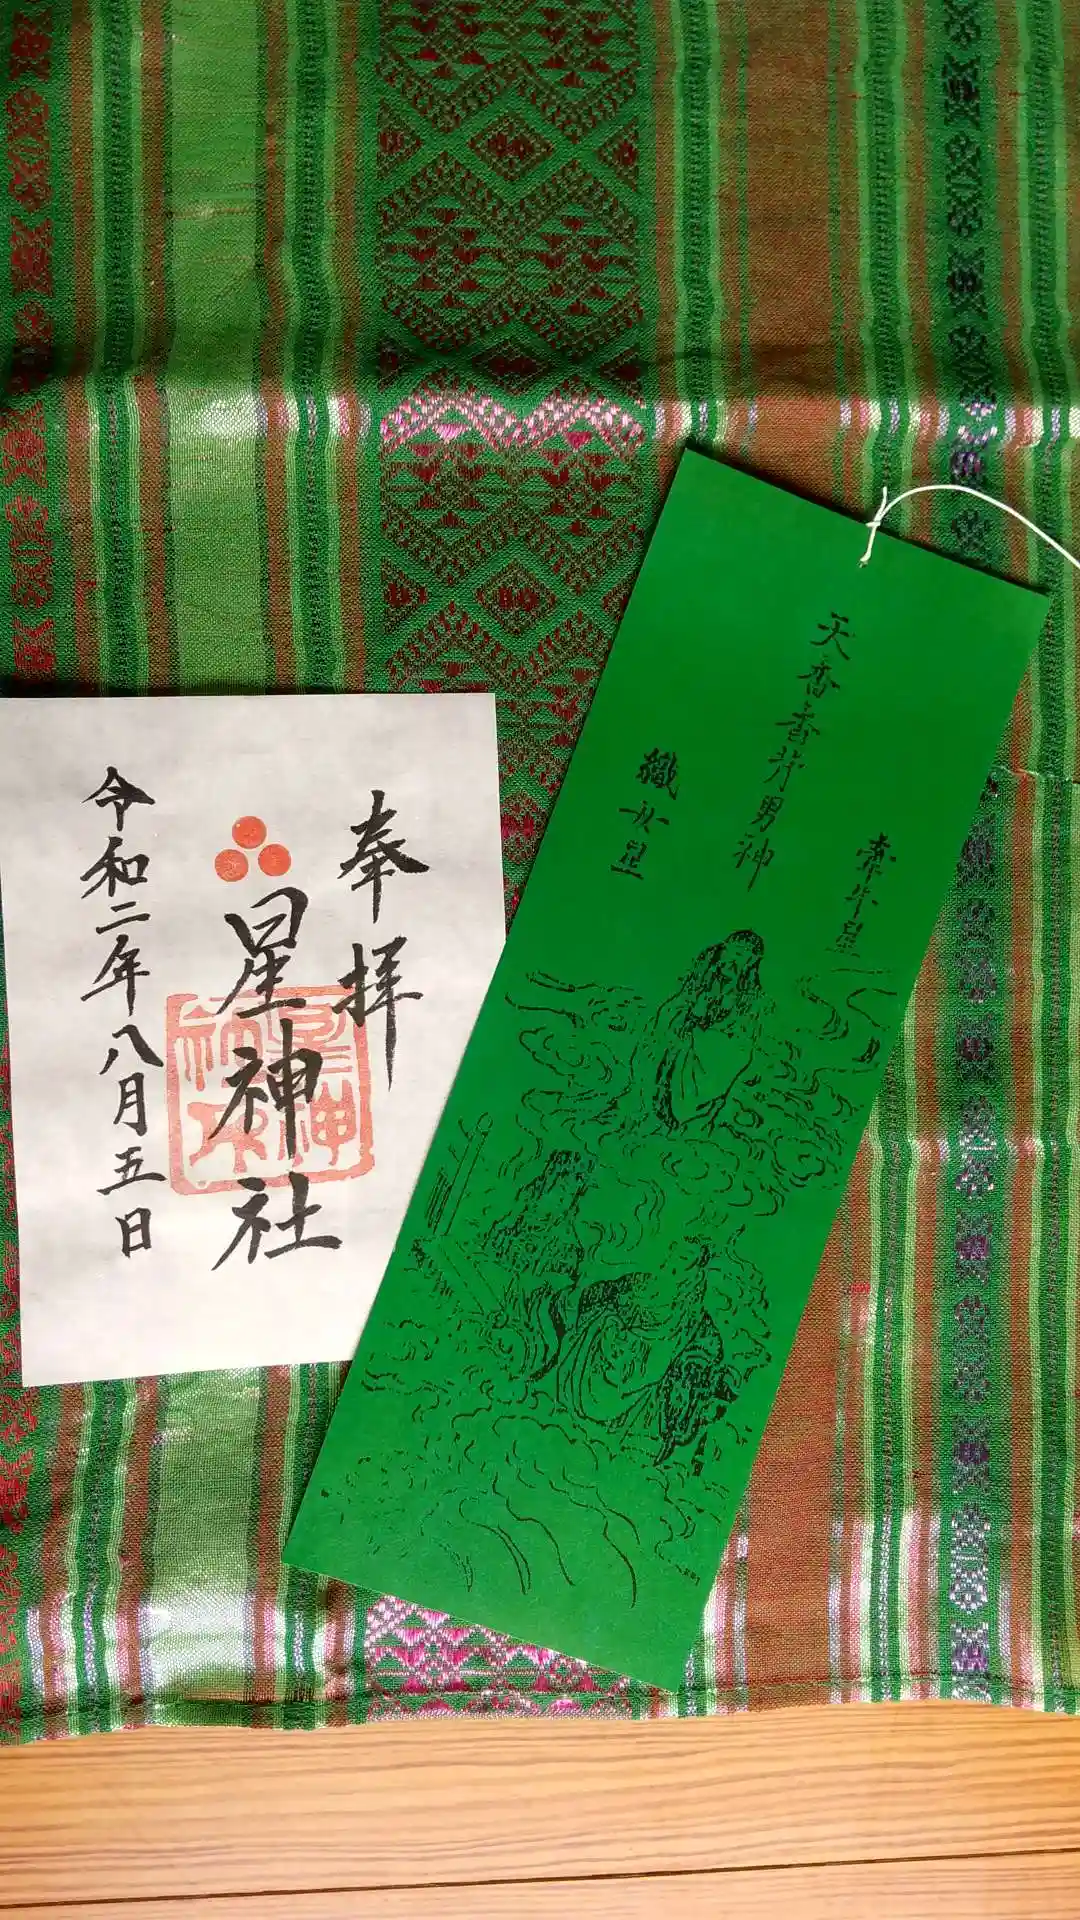 奉拝
星神社
令和二年八月五日
天香香背男神
牽牛星
織女星